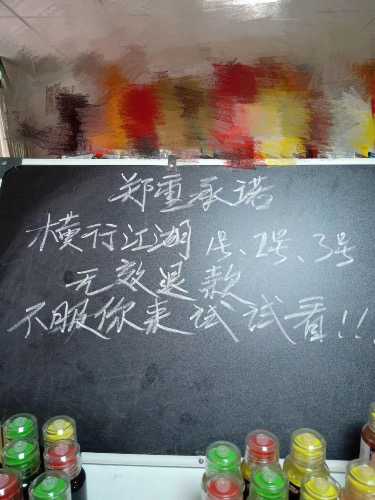 郑重承诺
横行江湖1号、2号、3号
无效退款
不服你来试试看!!!